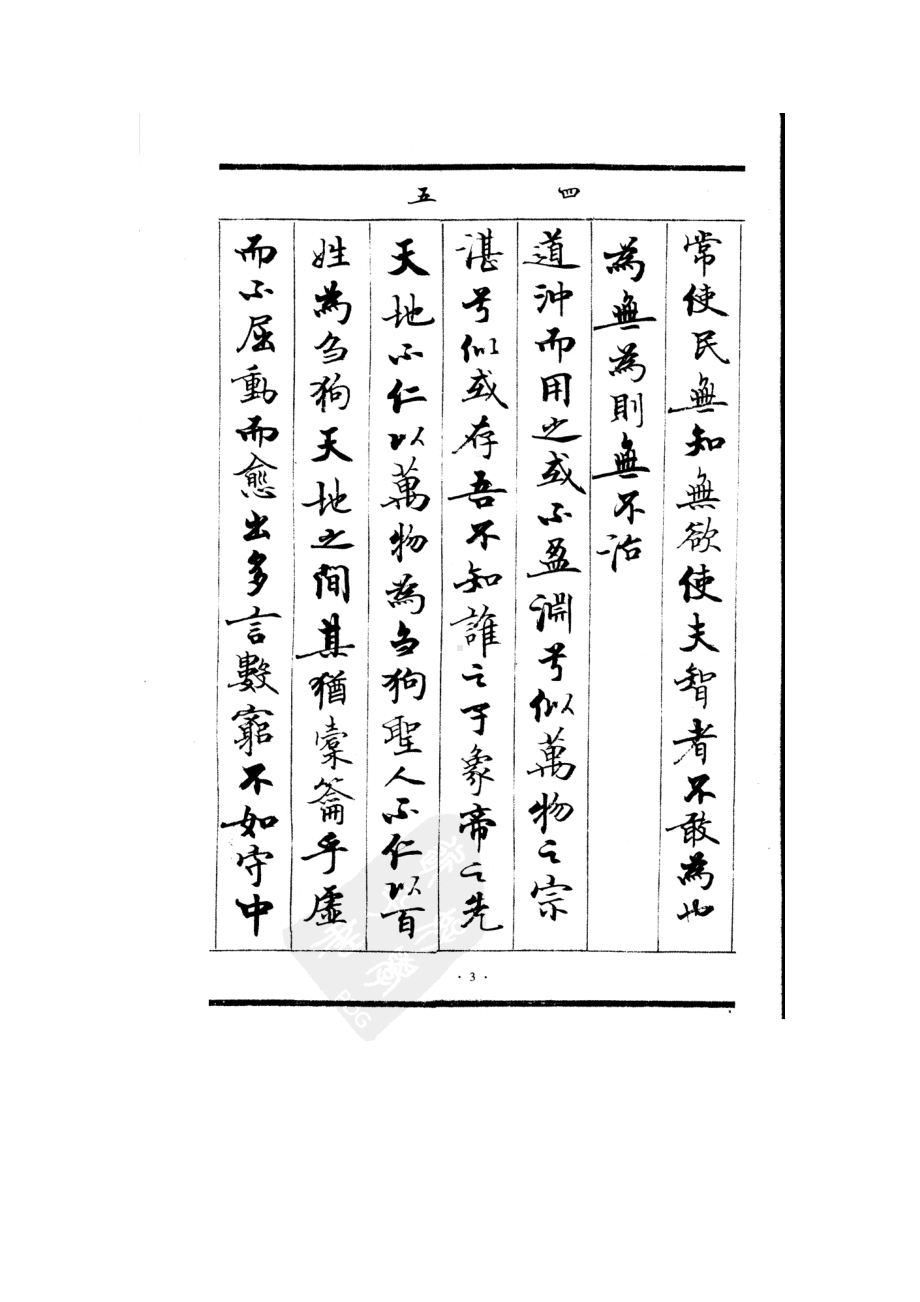 四
五
常使民無知無欲使夫智者不敢為也
為無為則無不治
道沖而用之或不盈淵兮似萬物之宗
湛兮似或存吾不知誰之子象帝之先
天地不仁以萬物為芻狗聖人不仁以百
姓為芻狗天地之間其猶橐籥乎虛
而不屈動而愈出多言數窮不如守中
· 3 ·